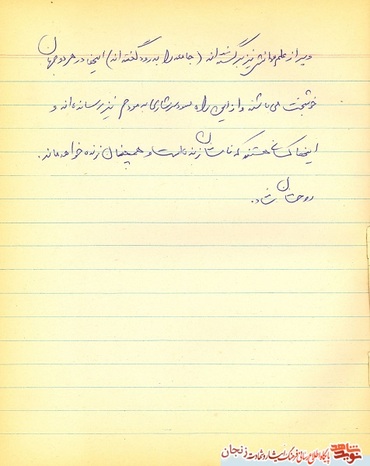 و پر از علم و دانش نیز برگشته‌اند (جامعه را بدرود گفته‌اند) اینها در هر دو جهان
خوشبخت می‌باشند و از این راه سود سرشاری به مردم نیز رسانده‌اند و
اینها کسانی هستند که نامشان زنده است و همچنان زنده خواهد ماند.
روحشان شاد.
نوید شاهد پایگاه اطلاع رسانی فرهنگ ایثار و شهادت زنجان